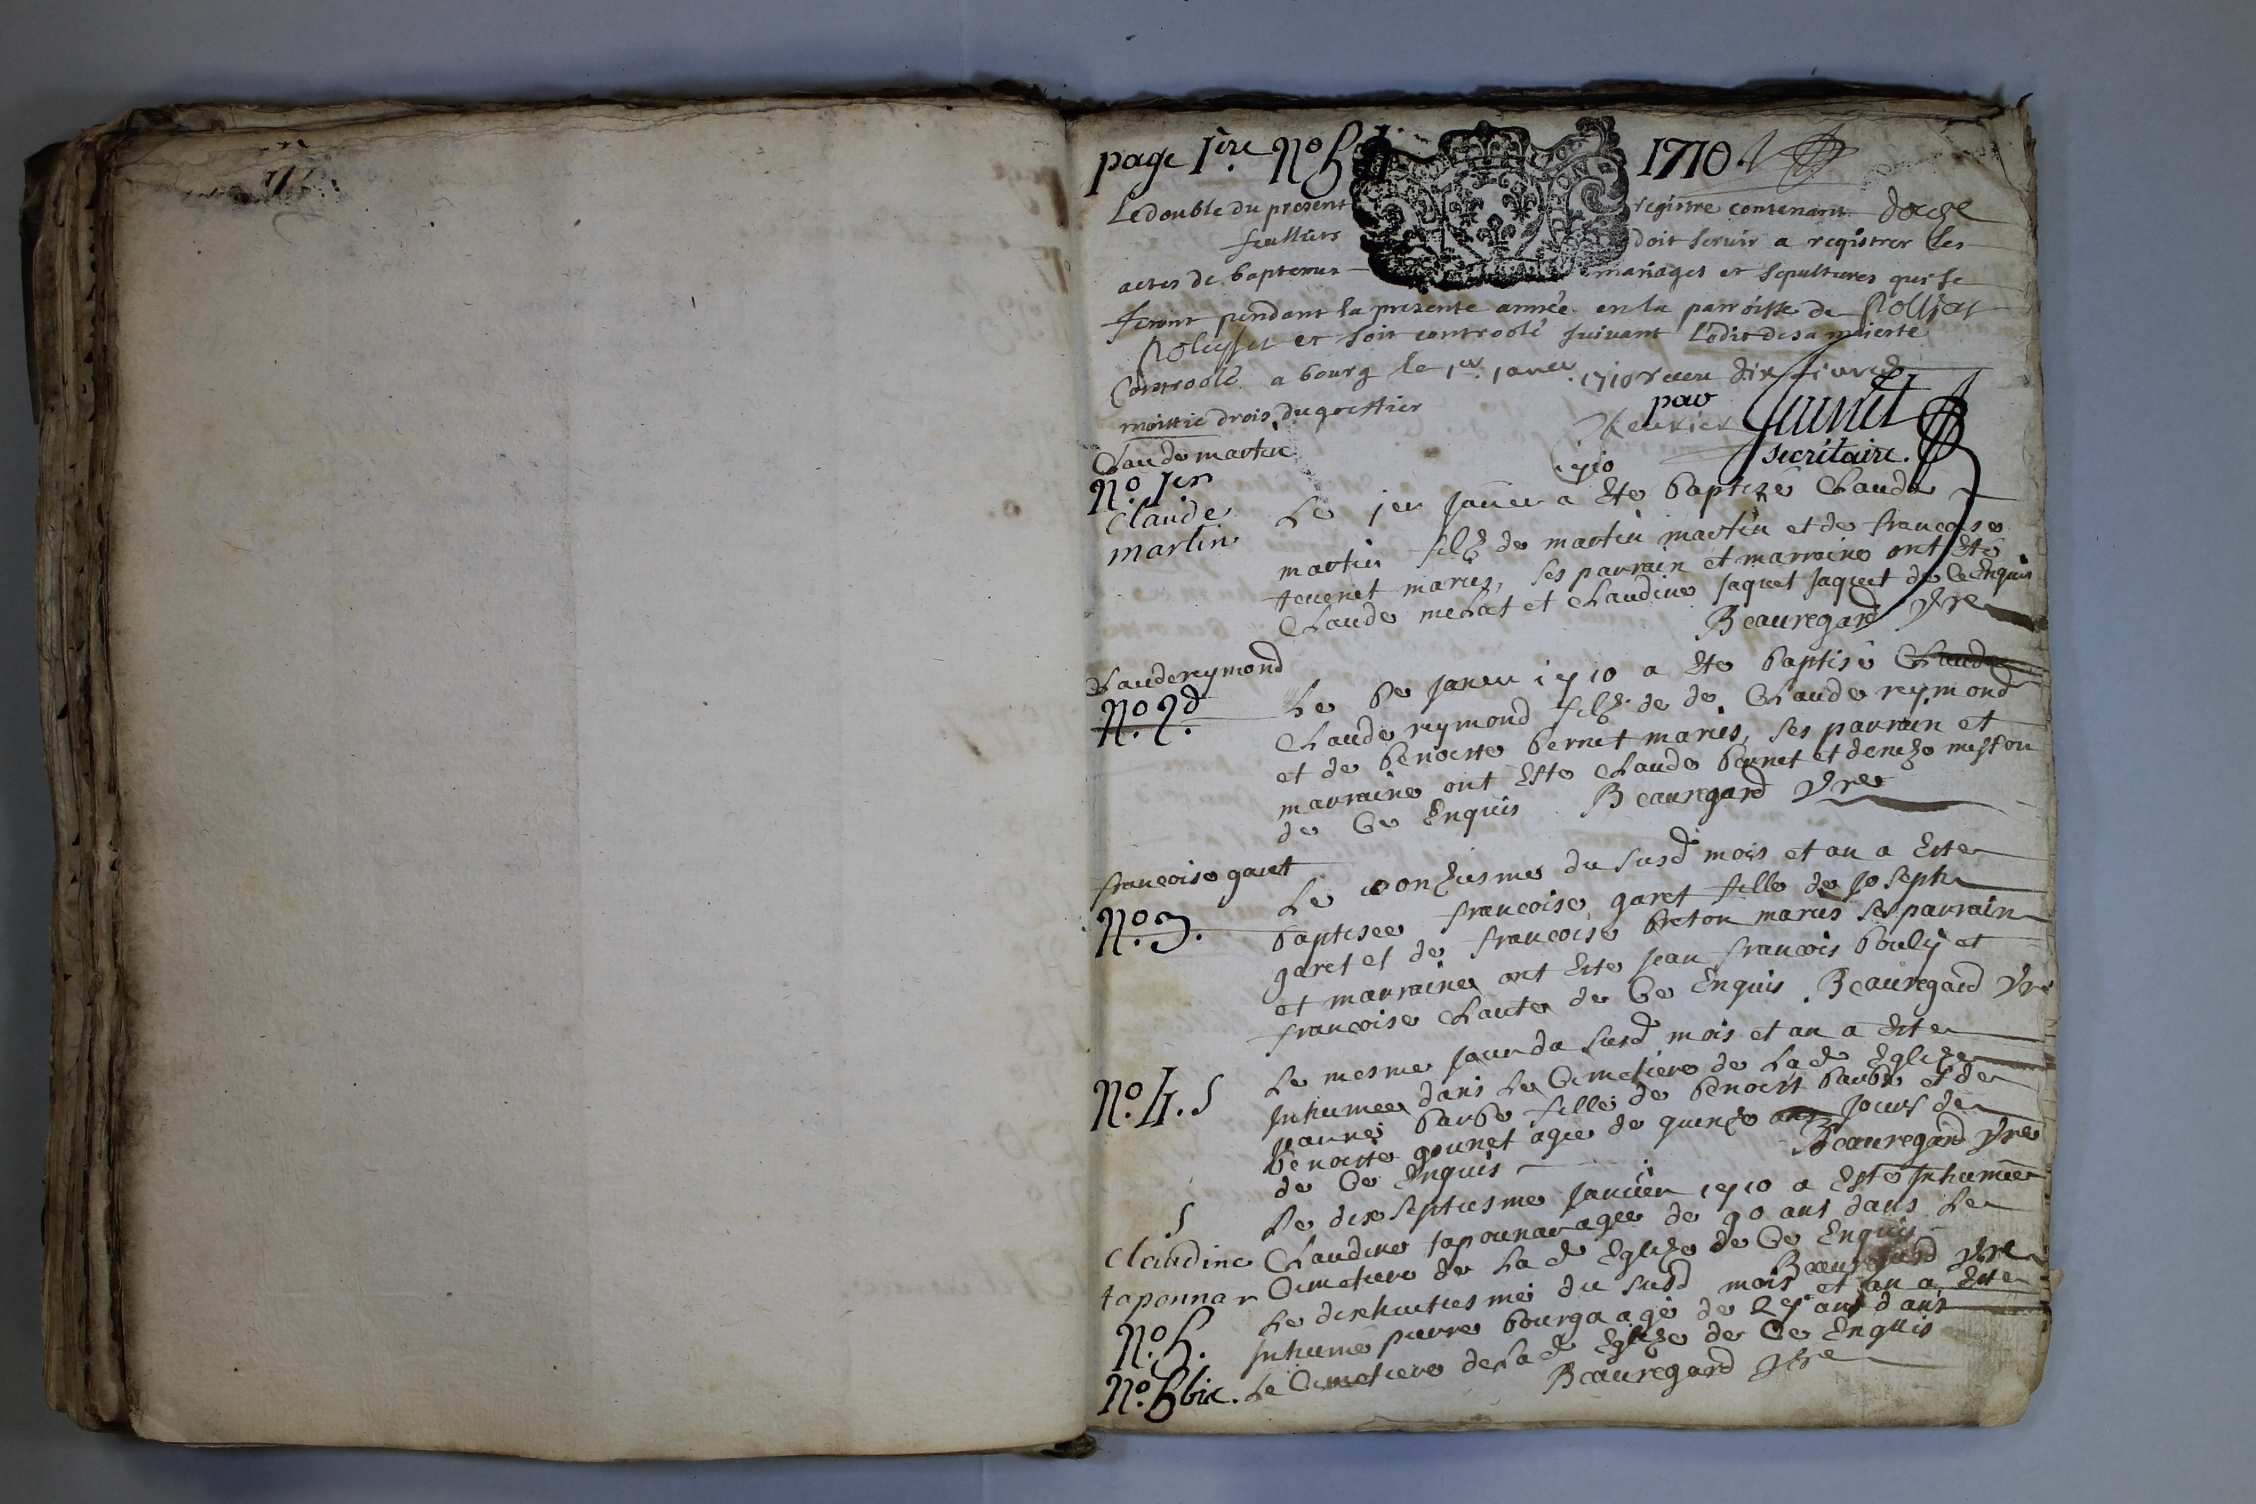 page 1ère No 5 1710.
Le double du present registre contenant douze
feulliets doit servir a registrer les
actes de baptemes mariages et sepultures qui se
feront pendant la presente année en la parroisse de Polliat
et soit controolé suivant Ledit de sa majesté
Controolé a bourg le 1er janvier 1710 receu dix livres
moittié drois du greffier
par
secrétaire.
Claude martin
1710
No. 1er
Claude
martin
Le jer janvier a Ete baptizé Claude
martin filz de martin martin et de francoise
tevenet mariés, ses parrain et marraine ont Eté
Claude et Claudine jaquet jaquet de Ce Enquis
Beauregard vre
Claude reymond
No. 2d.
Le 6e janvier 1710 a Ete baptisé Claude
Claude reymond filz de de Claude reymond
et de benoitte bernet mariés, ses parrain et
marraine ont Este Claude bernet et
de Ce Enquis Beauregard vre
francoise garet
No. 3.
Le onziesme du susd mois et an a Este
baptisee francoise garet fille de joseph
garet et de francoise breton mariés ses parrain
et marraine ont Este jean francois bouly et
francoise de Ce Enquis. Beauregard vre
No. 4. S
Le mesme jour du susd mois et an a Este
Inhumee dans Le Cimetiere de Lad Eglize
barbe fille de benoist barbe et de
benoitte gounet agee de quinze ans jours de
de Ce Enquis Beauregard vre
S
Claudine
taponnar
No. 5.
Le dix septiesme janvier 1710 a Esté Inhumée
Claudine taponnar agee de 90 ans dans Le
Cimetiere de Lad Eglize de Ce Enquis
Beauregard vre
No. 5 bis.
Le dixhuitiesme du susd mois et an a Este
Inhumé pierre bourga agé de ans dans
Le Cimetiere de Lad Eglize de Ce Enquis
Beauregard vre